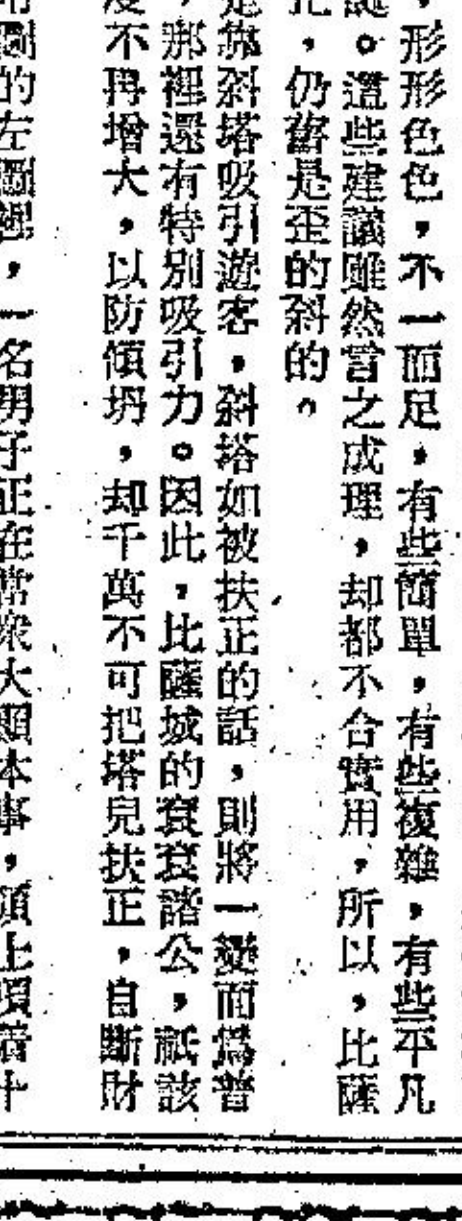 ，形形色色，不一而足，有些簡單，有些複雜，有些平凡
。這些建議雖然言之成理，却都不合實用，所以，比薩
，仍舊是歪的斜的。
是靠斜塔吸引遊客，斜塔如被扶正的話，則將一變而爲普
，那裡還有特別吸引力。因此，比薩城的袞袞諸公，祇該
度不再增大，以防傾坍，却千萬不可把塔兒扶正，自斷財
的左，一名男子正在當衆大顯本事，頭上頂着十